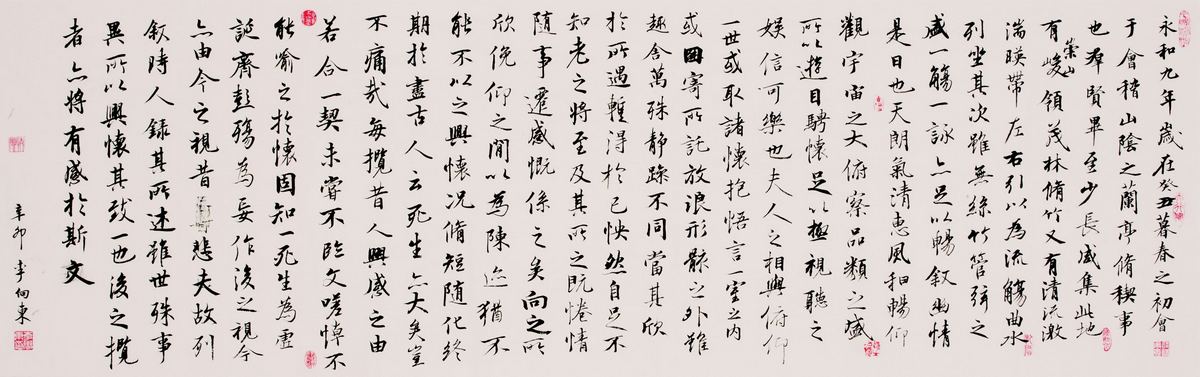 永和九年歲在癸丑暮春之初會
于會稽山陰之蘭亭脩稧事
也羣賢畢至少長咸集此地
有崇山峻領茂林脩竹又有清流激
湍暎帶左右引以為流觴曲水
列坐其次雖無絲竹管弦之
盛一觴一詠亦足以暢敘幽情
是日也天朗氣清惠風和暢仰
觀宇宙之大俯察品類之盛
所以遊目騁懷足以極視聽之
娛信可樂也夫人之相與俯仰
一世或取諸懷抱悟言一室之內
或因寄所託放浪形骸之外雖
趣舍萬殊靜躁不同當其欣
於所遇蹔得於己怏然自足不
知老之將至及其所之既惓情
隨事遷感慨係之矣向之所
欣俛仰之閒以為陳迹猶不
能不以之興懷況脩短隨化終
期於盡古人云死生亦大矣豈
不痛哉每攬昔人興感之由
若合一契未嘗不臨文嗟悼不
能喻之於懷固知一死生為虛
誕齊彭殤為妄作後之視今
亦由今之視昔悲夫故列
敘時人錄其所述雖世殊事
異所以興懷其致一也後之攬
者亦將有感於斯文
辛卯 李 東